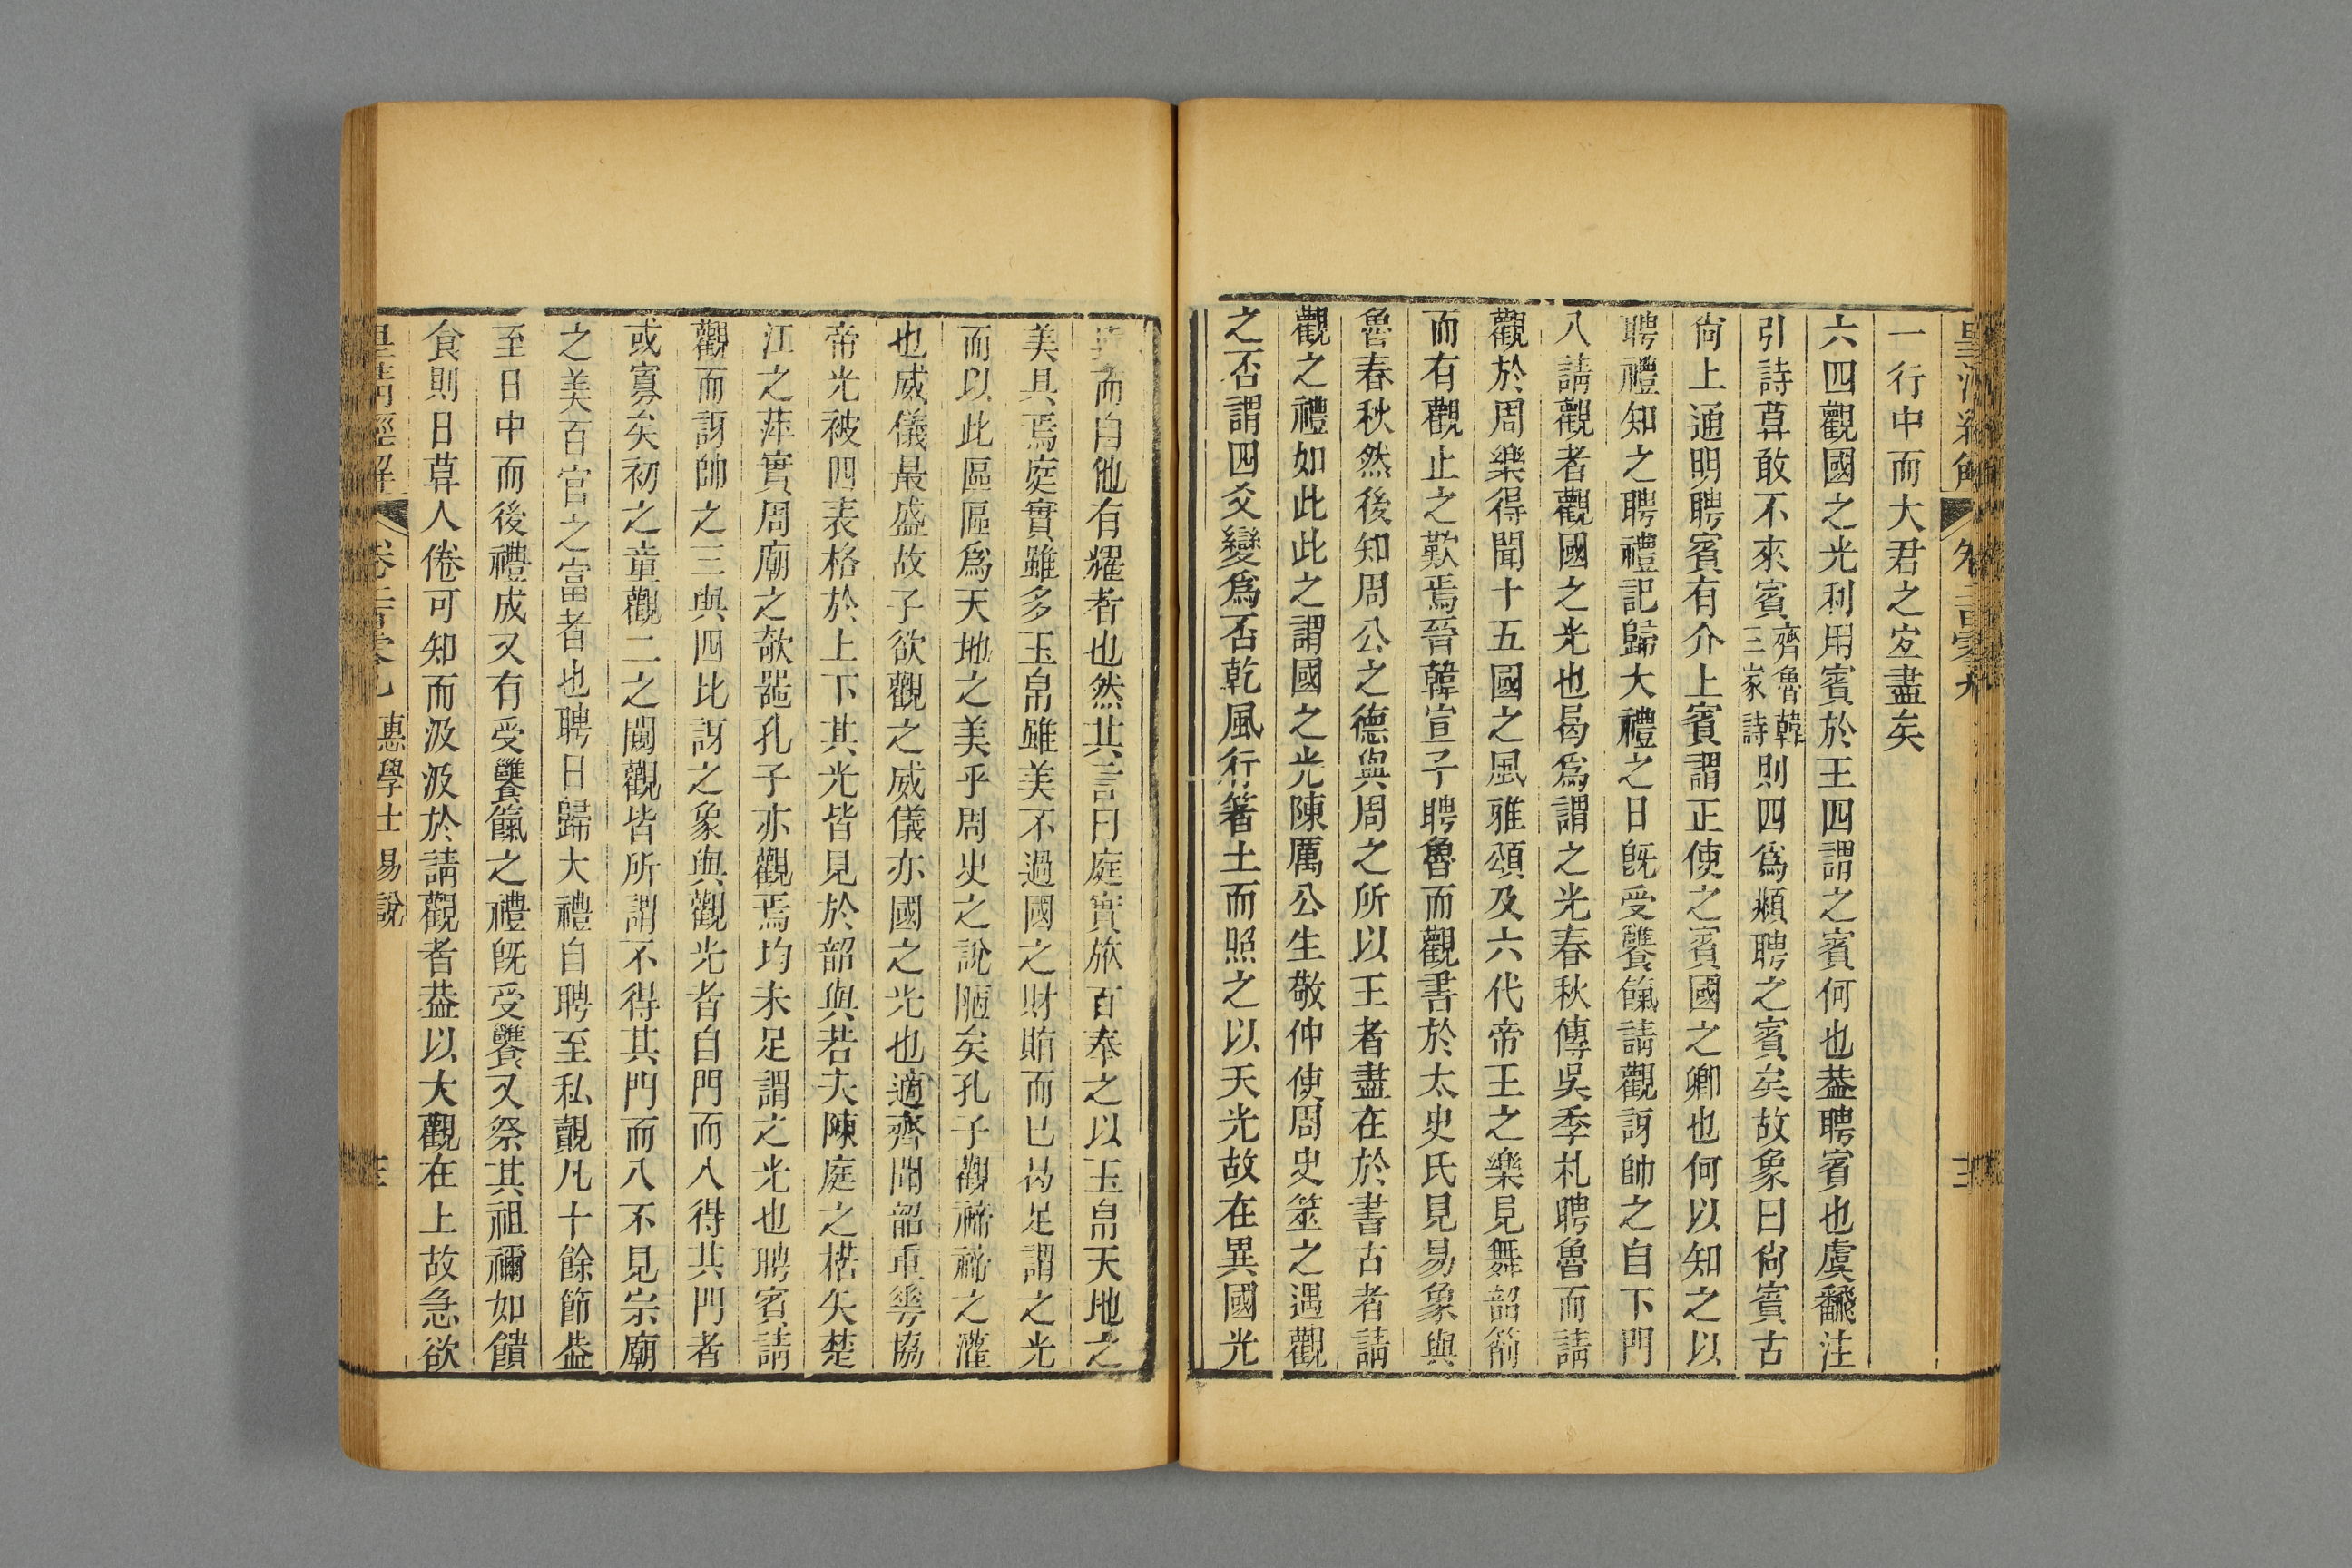 皇清經解
卷二百九
一行中而大君之宐盡矣
六四觀國之光利用賓於王四謂之賓何也葢聘賓也虞飜注
引詩莫敢不來賓齊魯韓三家詩則四爲頫聘之賓矣故象曰尙賓古
尙上通明聘賓有介上賓謂正使之賓國之卿也何以知之以
聘禮知之聘禮記歸大禮之日旣受饔餼請觀訝帥之自下門
入請觀者觀國之光也曷爲謂之光春秋傳吳季札聘魯而請
觀於周樂得聞十五國之風雅頌及六代帝王之樂見舞韶箾
而有觀止之歎焉晉韓宣子聘魯而觀書於太史氏見易象與
魯春秋然後知周公之德與周之所以王者盡在於書古者請
觀之禮如此此之謂國之光陳厲公生敬仲使周史筮之遇觀
之否謂四爻變爲否乾風行箸土而照之以天光故在異國光
遠而自他有耀者也然其言曰庭實旅百奉之以玉帛天地之
美具焉庭實雖多玉帛雖美不過國之財賄而已曷足謂之光
而以此區區爲天地之美乎周史之說陋矣孔子觀禘禘之灌
也威儀最盛故子欲觀之威儀亦國之光也適齊聞韶重華協
帝光被四表格於上下其光皆見於韶與若夫陳庭之楛矢楚
江之萍實周廟之欹器孔子亦觀焉均未足謂之光也聘賓請
觀而訝帥之三與四比訝之象與觀光者自門而入得其門者
或寡矣初之童觀二之闚觀皆所謂不得其門而入不見宗廟
之美百官之富者也聘日歸大禮自聘至私覿凡十餘節葢
至日中而後禮成又有受饔餼之禮旣受饔又祭其祖禰如饋
食則日莫人倦可知而汲汲於請觀者葢以大觀在上故急欲
皇清經解
惠學士易說